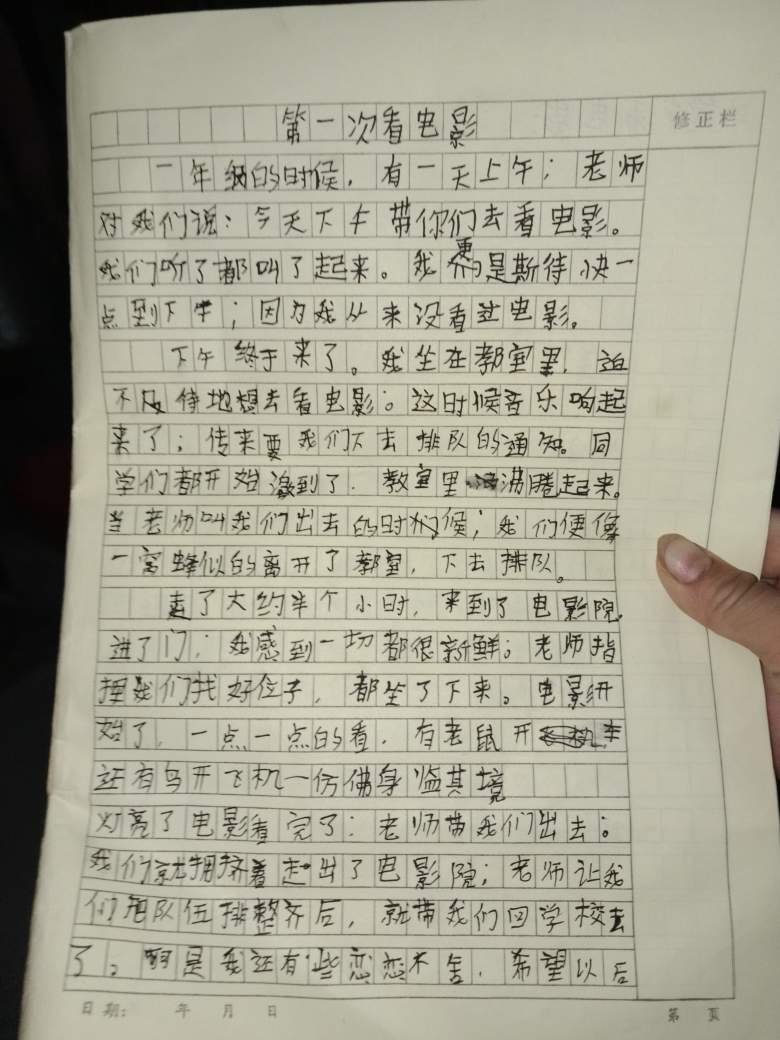 第一次看电影
修正栏
一年级的时候，有一天上午；老师
对我们说：今天下午带你们去看电影。
我们听了都叫了起来。我更是斯待快一
点到下午；因为我从来没看过电影。
下午终于来了。我坐在教室里，迫
不及待地想去看电影。这时候音乐响起
来了；传来要我们下去排队的通知。同
学们都开始激到了．教室里沸腾起来。
当老师叫我们出去的时候；我们便像
一窝蜂似的离开了教室，下去排队。
走了大约半个小时，来到了电影院，
进了门；我感到一切都很新鲜。老师指
挥我们找好位子，都坐了下来。电影开
始了，一点一点的看，有老鼠开车
还有鸟开飞机一仿佛身临其境
灯亮了电影看完了：老师带我们出去。
我们就拥挤着走出了电影院；老师让我
们把队伍排整齐后，就带我们回学校去
了。可是我还有些恋恋不舍，希望以后
日期： 年 月 日 第 页